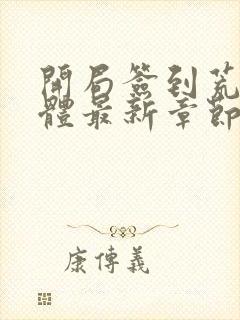 開局簽到荒
體最新章節
康傳義